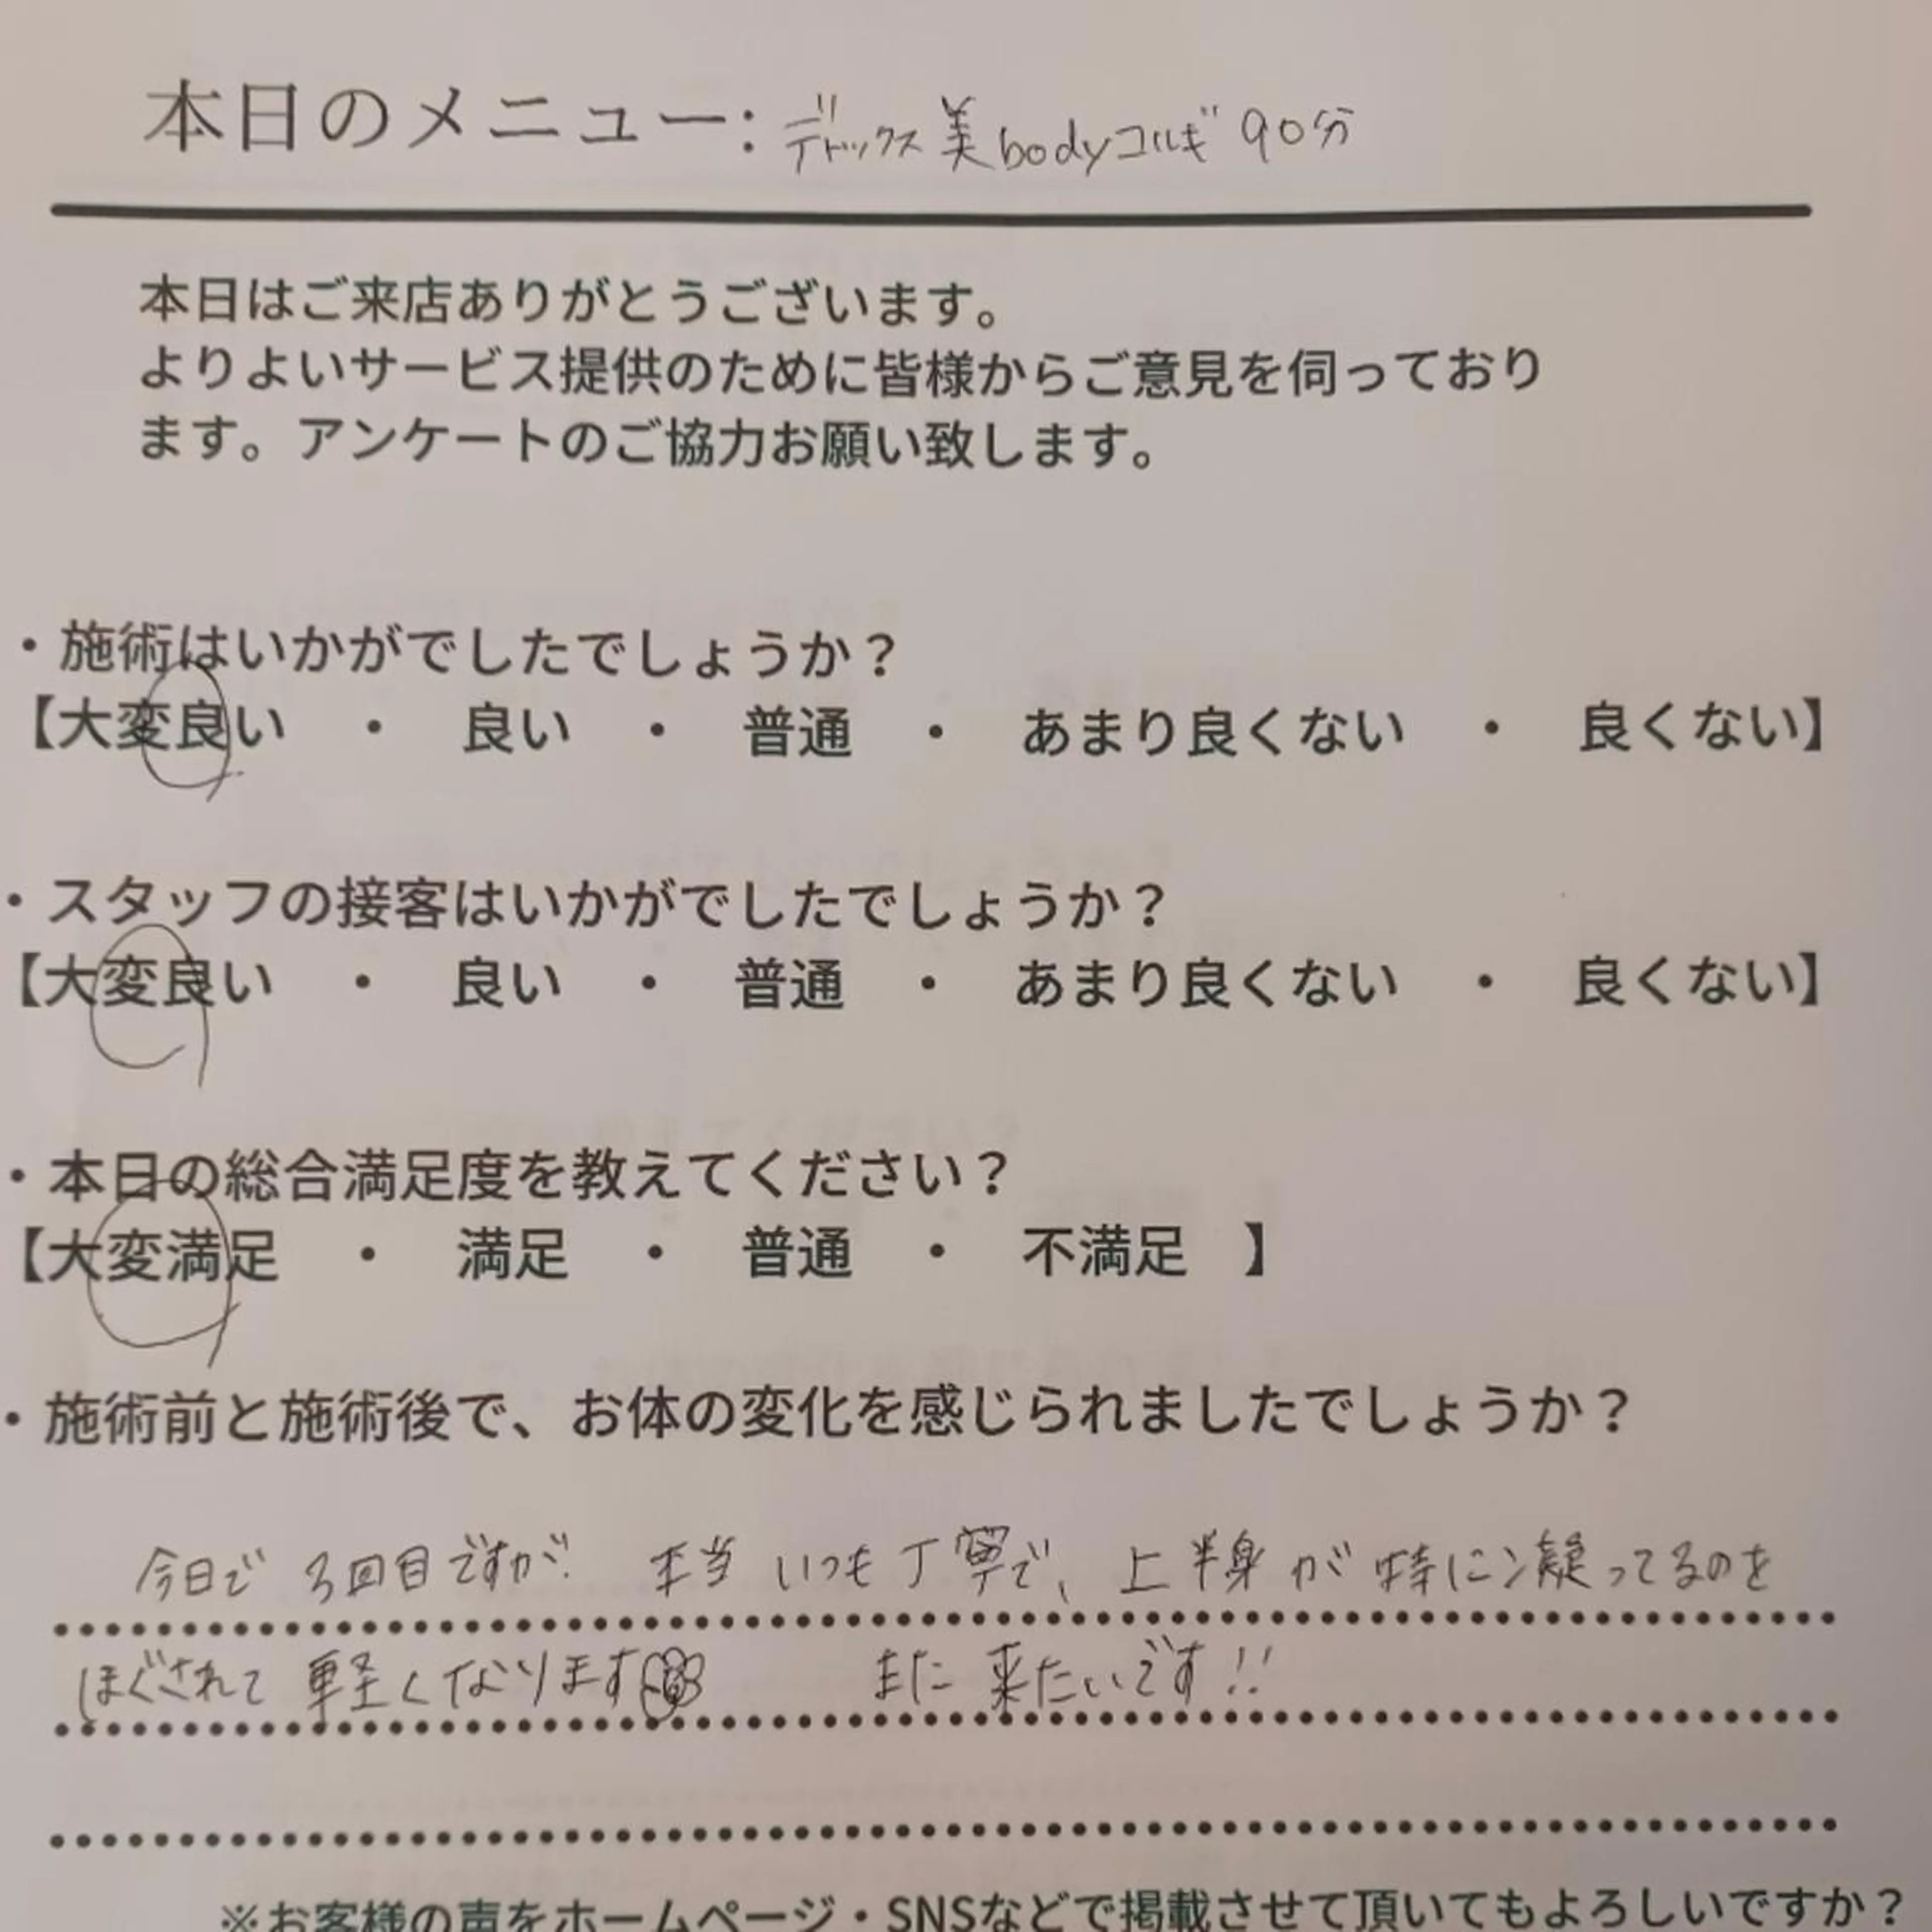 本日のメニュー: デトックス美bodyコルギ 90分
本日はご来店ありがとうございます。
よりよいサービス提供のために皆様からご意見を伺っており
ます。アンケートのご協力お願い致します。
・施術はいかがでしたでしょうか？
【大変良い ・ 良い ・ 普通 ・ あまり良くない ・ 良くない】
・スタッフの接客はいかがでしたでしょうか？
【大変良い ・ 良い ・ 普通 ・ あまり良くない ・ 良くない】
・本日の総合満足度を教えてください？
【大変満足 ・ 満足 ・ 普通 ・ 不満足 】
・施術前と施術後で、お体の変化を感じられましたでしょうか？
今日で 3回目ですが、本当 いつも 丁寧で、上半身 が 特に凝ってるのを
ほぐされて 軽くなります また 来たいです!!
※お客様の声をホームページ・SNSなどで掲載させて頂いてもよろしいですか？